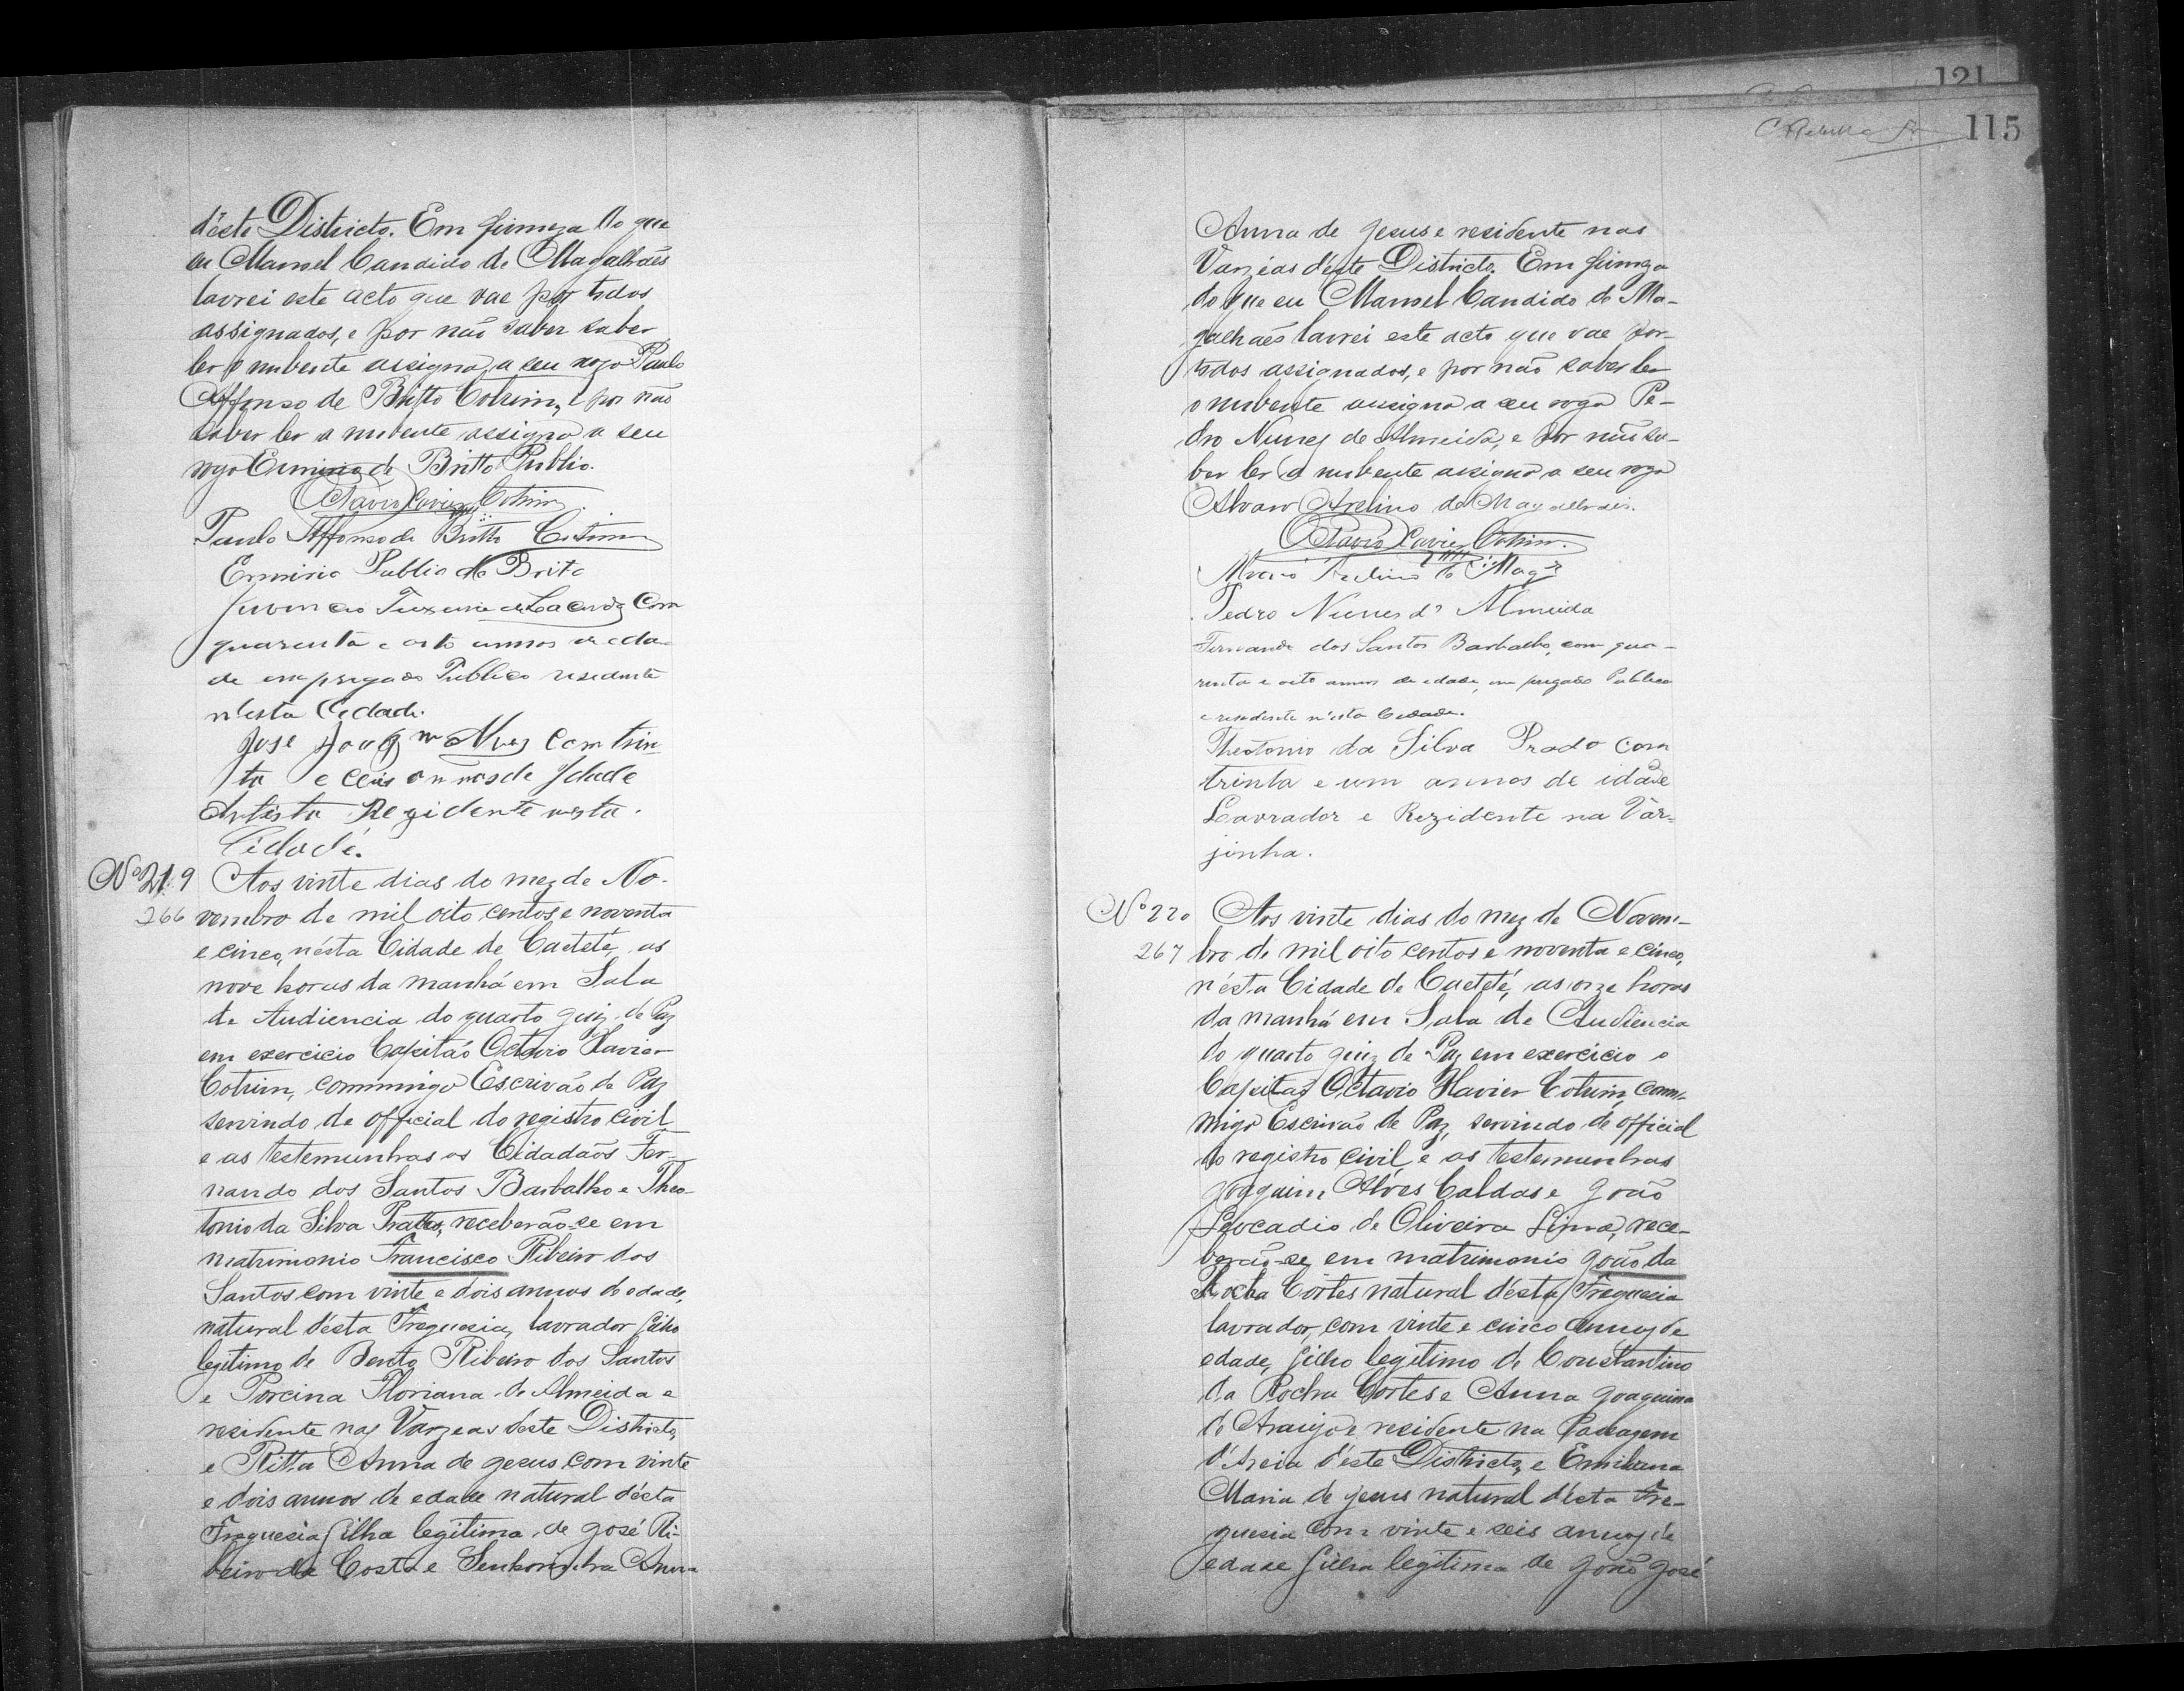 d'este Districto. Em firmeza do que
eu Manoel Candido de Magalhães
lavrei este acto que vae por todos
assignados, e por não saber saber
ler o nubente assigna a seu rogo Paulo
Affonso de Britto Cotrim, e por não
saber ler a nubente assigna a seu
rogo Erminio de Britto Publio.
Octavio Xavier Cotrim
Paulo Affonso de Britto Cotrim
Erminio Publio de Brito
Juvencio de Lacerda Com
quarenta e oito annos de eda-
de empregado Publico residente
n'esta Cidade.
José Joaqm Alves Com trin
ta e ceis annos de Idade
Artista Rezidente nesta
Cidade.
Nº 219 Aos vinte dias do mez de No-
266 vembro de mil oito centos e noventa
e cinco, nésta Cidade de Caeteté, as
nove horas da manhá em Sala
de Audiencia do quarto juiz de Paz
em exercicio Capitão Octavio Xavier
Cotrim, commigo Escrivão de Paz
servindo de official do registro civil
e as testemunhas os Cidadãos Fer-
nando dos Santos Barbalho e Theo-
tonio da Silva Prates, receberão-se em
matrimonio Francisco Ribeiro dos
Santos com vinte e dois annos de edade,
natural désta Freguesia, lavrador filho
legitimo de Bento Ribeiro dos Santos
e Porcina Floriana de Almeida e
residente nas Varzeas déste Districto,
e Ritta Anna de Jesus com vinte
e dois annos de edade natural désta
Freguesia filha legitima de José Ri-
beiro da Costa e Senhorinha Anna
115
Anna de Jesus e residente nas
Varzéas d'éste Districto. Em firmeza
do que eu Manoel Candido de Ma-
galhães lavrei este acto que vae por
todos assignados, e por não saber ler
o nubente assigna a seu rogo Pe-
dro Nunes de Almeida, e por não sa-
ber ler a nubente assigna a seu rogo
Alvaro Avelino de Magalhães.
Octavio Xavier Cotrim.
Avelino de Mag.es
Pedro Nunes d' Almeida
Fernando dos Santos Barbalho, com qua-
renta e oito annos de edade, empregado Publico
e residente n'esta Cidade.
Theotonio da Silva Prado com
trinta e um annos de idade
Lavrador e Rezidente na Vár-
jinha.
Nº 220 Aos vinte dias do mez de Novem-
267 bro de mil oito centos e noventa e cinco,
n'ésta Cidade de Caeteté, as onze horas
da manhá em Sala de Audiencia
do quarto juiz de Paz em exercicio o
Capitão Octavio Xavier Cotrim, com-
migo Escrivão de Paz, servindo de official
do registro civil, e as testemunhas
Joaquim Alves Caldas e João
Leocadio de Oliveira Lima, rece-
berão-se em matrimonio João da
Rocha Côrtes natural désta Freguesia
lavrador, com vinte e cinco annos de
edade, filho legitimo de Constantino
da Rocha Côrtes e Anna Joaquina
de Araujo e residente na Passagem
d'Areia d'éste Districto, e Emiliana
Maria de Jesus natural d'ésta Fre-
guesia Com vinte e seis annos de
edade filha legitima de João José